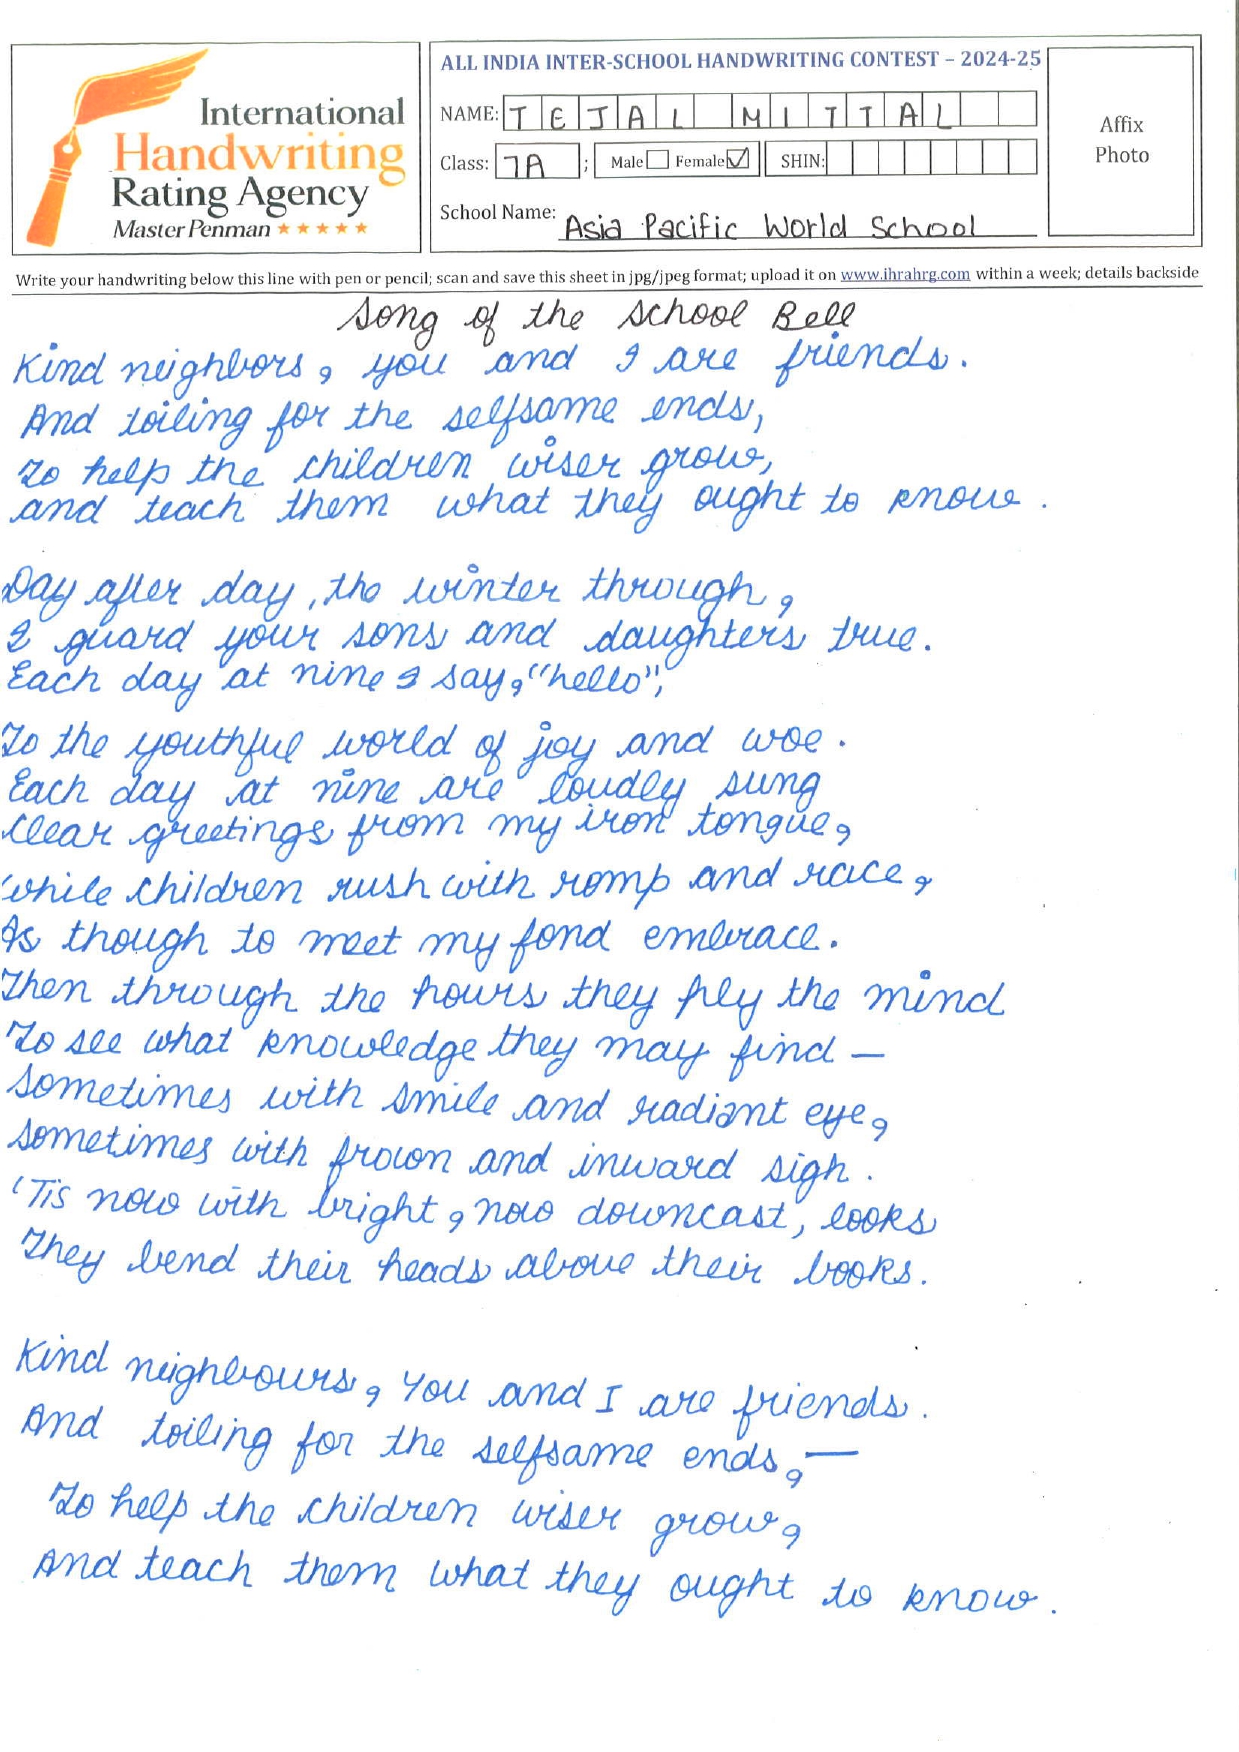 ALL INDIA INTER-SCHOOL HANDWRITING CONTEST – 2024-25
International
Handwriting
Rating Agency
Master Penman
NAME: TEJAL MITTAL
Class: 7A ; Male Female SHIN:
School Name: Asia Pacific World School
Affix
Photo
Write your handwriting below this line with pen or pencil; scan and save this sheet in jpg/jpeg format; upload it on www.ihrahrg.com within a week; details backside
Song of the School Bell
Kind neighbors, you and I are friends.
And toiling for the selfsame ends,
To help the children wiser grow,
and teach them what they ought to know.
Day after day, the winter through,
I guard your sons and daughters true.
Each day at nine I say, "hello",
To the youthful world of joy and woe.
Each day at nine are loudly sung
Clear greetings from my iron tongue,
While children rush with romp and race,
As though to meet my fond embrace.
Then through the hours they ply the mind
To see what knowledge they may find —
Sometimes with smile and radiant eye,
Sometimes with frown and inward sigh.
'Tis now with bright, now downcast, looks
They bend their heads above their books.
Kind neighbours, You and I are friends.
And toiling for the selfsame ends, —
To help the children wiser grow,
And teach them what they ought to know.